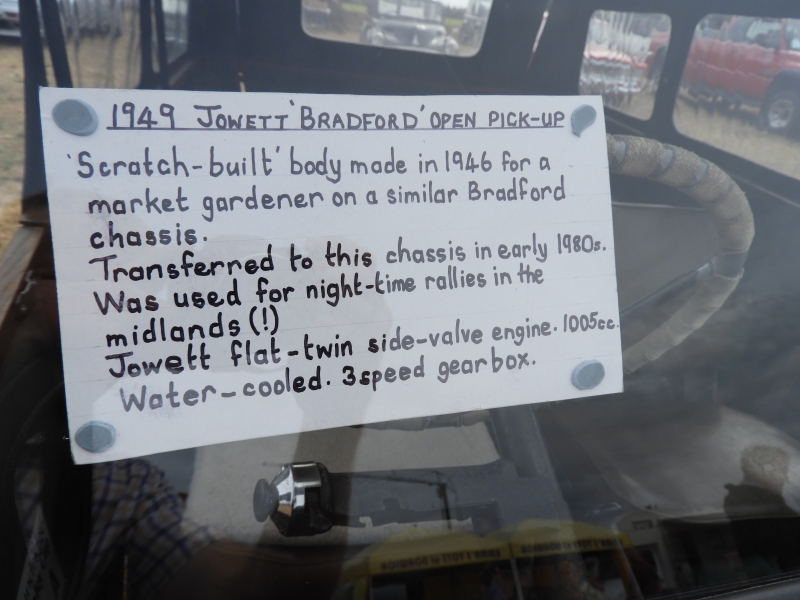 1949 JOWETT 'BRADFORD' OPEN PICK-UP
'Scratch-built' body made in 1946 for a
market gardener on a similar Bradford
chassis.
Transferred to this chassis in early 1980s.
Was used for night-time rallies in the
midlands (!)
Jowett flat-twin side-valve engine. 1005cc.
Water-cooled. 3 speed gearbox.